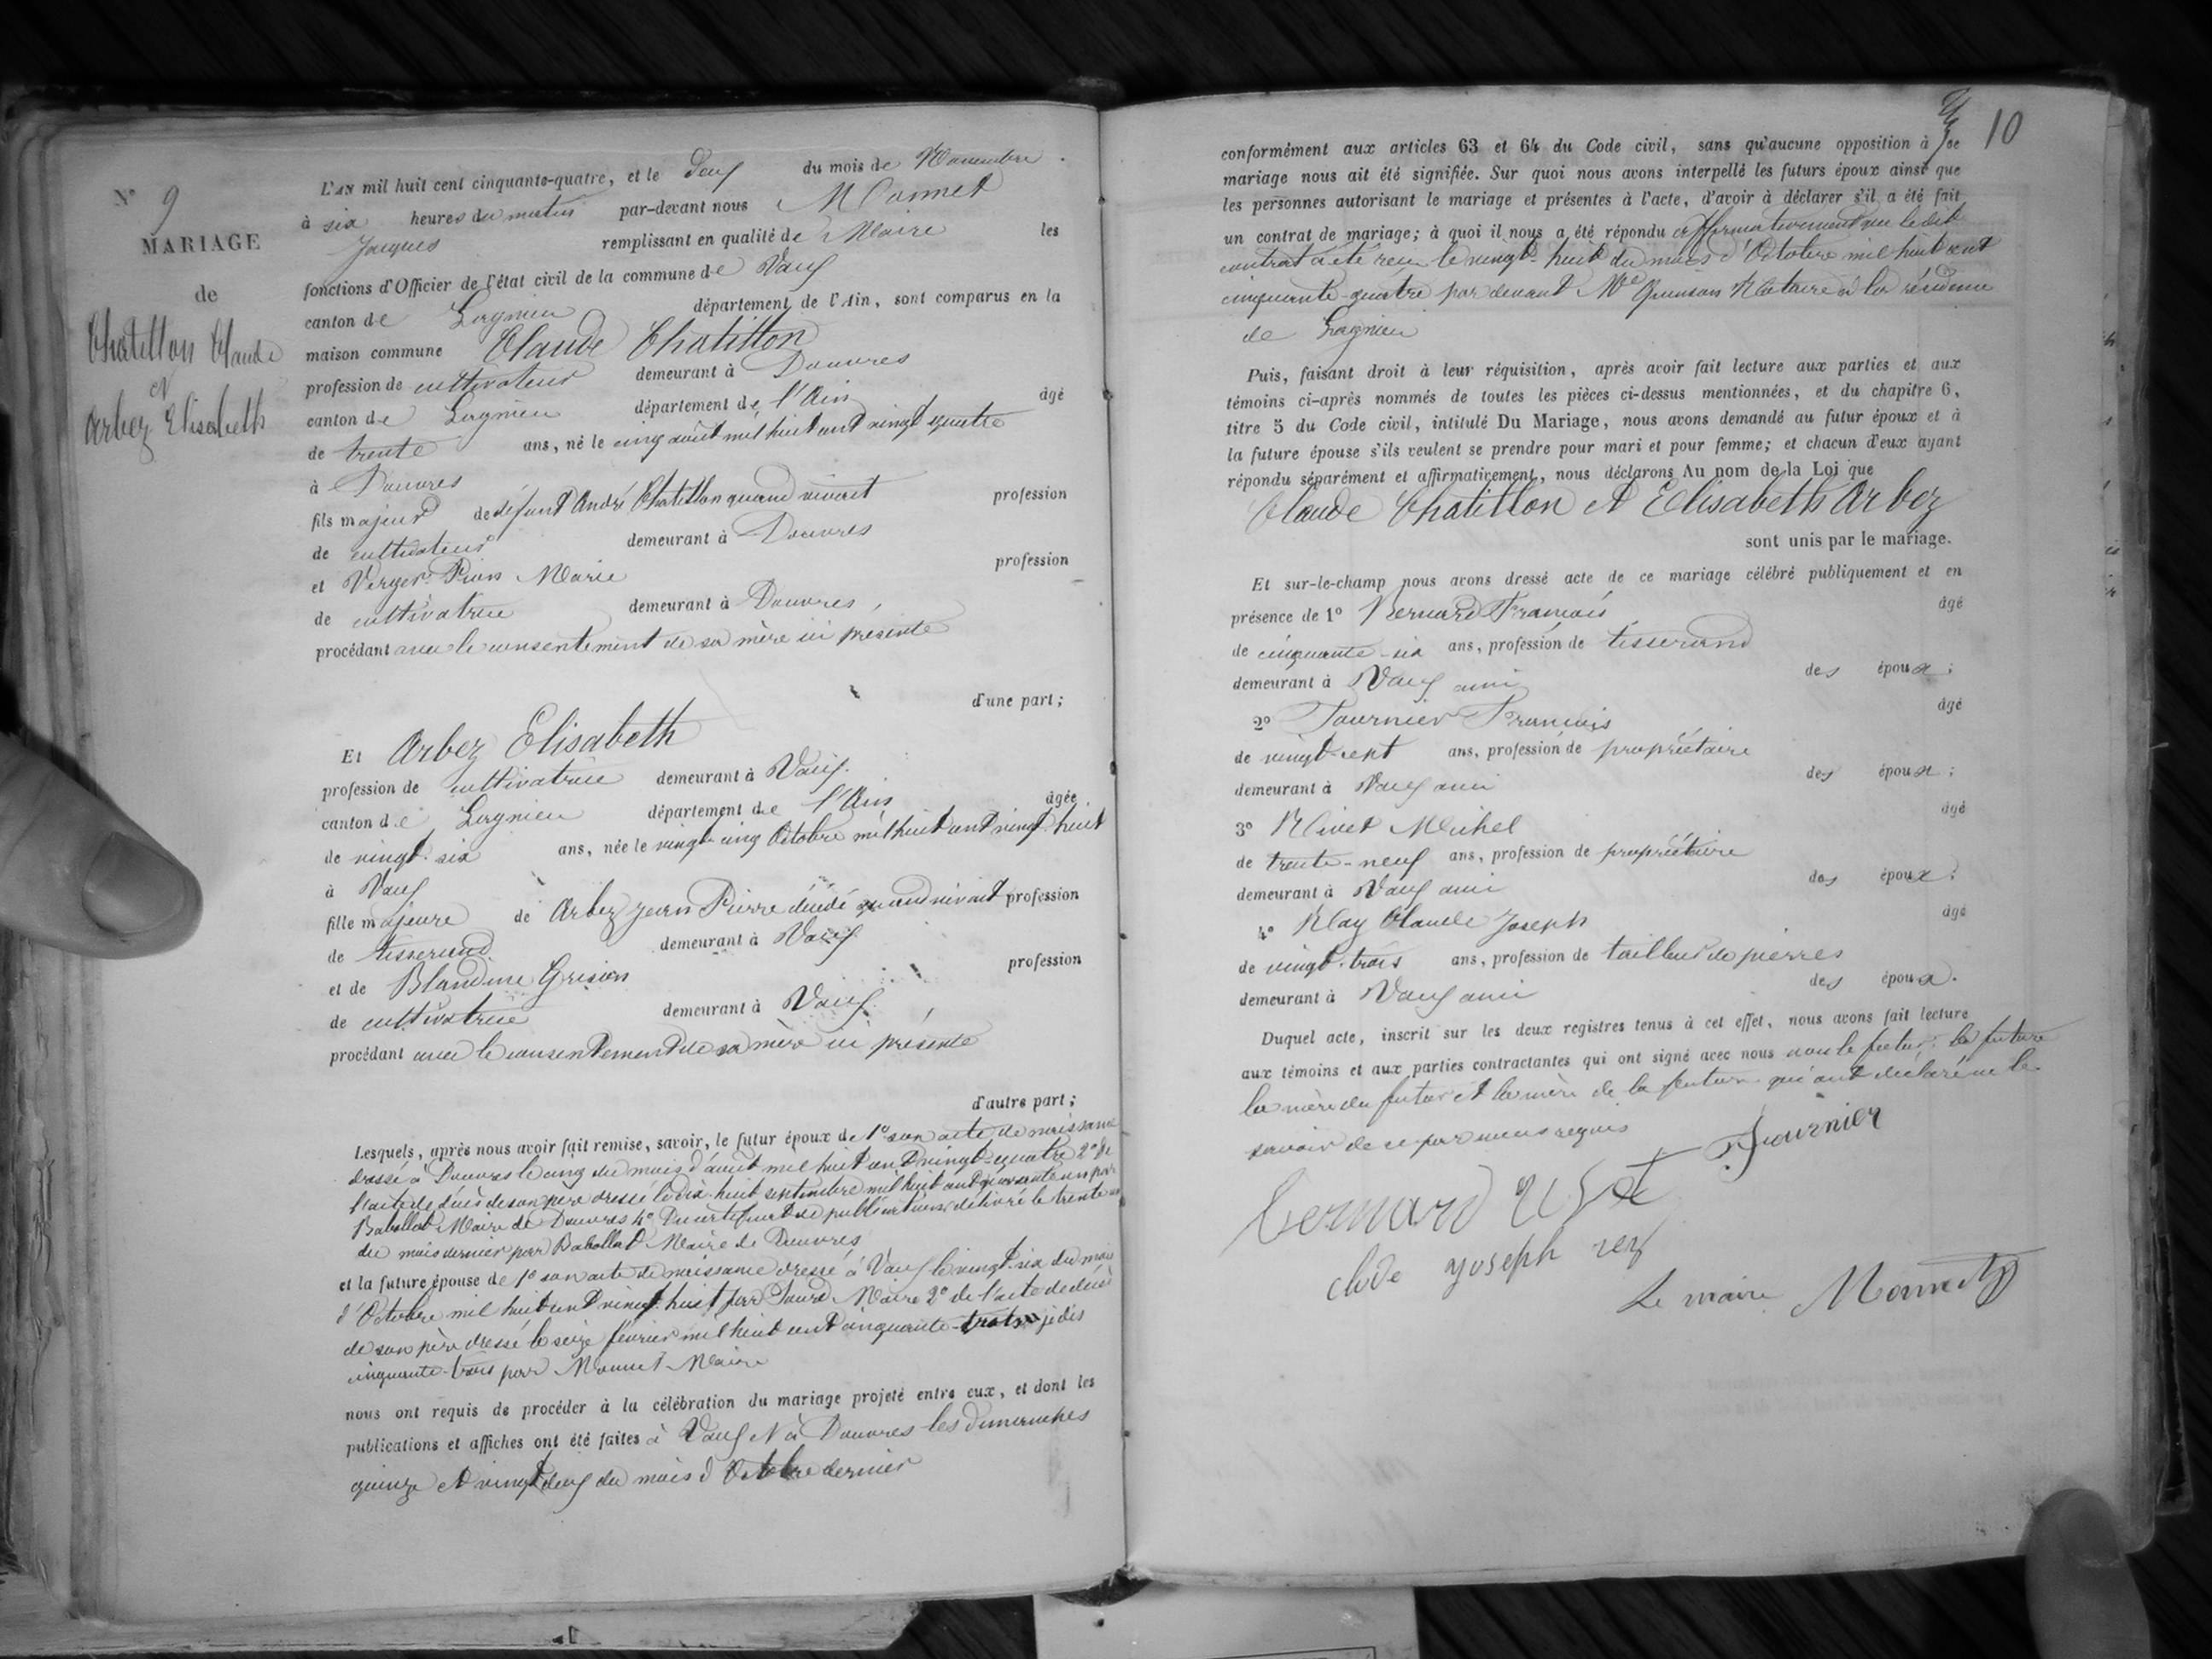 N° 9
MARIAGE
de
Chatillon Claude
et
Arbez Elisabeth
L'AN mil huit cent cinquante-quatre, et le deux du mois de Novembre
à six heures du matin par-devant nous Monnet
Jacques remplissant en qualité de Maire les
fonctions d'Officier de l'état civil de la commune de Vaux
canton de Lagnieu département de l'Ain, sont comparus en la
maison commune Claude Chatillon
profession de cultivateur demeurant à Douvres
canton de Lagnieu département de l'Ain âgé
de trente ans, né le cinq août mil huit cent vingt quatre
à Douvres
fils majeur de défunt André Chatillon quand vivait profession
de cultivateur demeurant à Douvres
et Verger Marie profession
de cultivatrice demeurant à Douvres,
procédant avec le consentement de sa mère ici présente
d'une part;
Et Arbez Elisabeth
profession de cultivatrice demeurant à Vaux.
canton de Lagnieu département de l'Ain âgée
de vingt-six ans, née le vingt-cinq Octobre mil huit cent vingt-huit
à Vaux
fille majeure de Arbez Jean Pierre décédé quand vivait profession
de tisserand demeurant à Vaux
et de Blandine Grision profession
de cultivatrice demeurant à Vaux
procédant avec le consentement de sa mère ici présente
d'autre part;
Lesquels, après nous avoir fait remise, savoir, le futur époux de 1° son acte de naissance
dressé à Douvres le cinq du mois d'août mil huit cent vingt-quatre 2° de
l'acte de décès de son père dressé le dix-huit septembre mil huit cent quarante un par
Babollat Maire de Douvres 4° Du certificat de publications délivré le trente un
du mois dernier par Babollat Maire de Douvres
et la future épouse de 1° son acte de naissance dressé à Vaux le vingt-six du mois
d'Octobre mil huit cent vingt-huit par Maire 2° de l'acte de décès
de son père dressé le seize février mil huit cent cinquante-trois je dis
cinquante-trois par Monnet Maire
nous ont requis de procéder à la célébration du mariage projeté entre eux, et dont les
publications et affiches ont été faites à Vaux et à Douvres les dimanches
quinze et vingt deux du mois d'Octobre dernier
10
conformément aux articles 63 et 64 du Code civil, sans qu'aucune opposition à ce
mariage nous ait été signifiée. Sur quoi nous avons interpellé les futurs époux ainsi que
les personnes autorisant le mariage et présentes à l'acte, d'avoir à déclarer s'il a été fait
un contrat de mariage; à quoi il nous a été répondu affirmativement que ledit
contrat a été reçu le vingt-huit du mois d'Octobre mil huit cent
cinquante-quatre par devant Me Quinson Notaire à la résidence
de Lagnieu
Puis, faisant droit à leur réquisition, après avoir fait lecture aux parties et aux
témoins ci-après nommés de toutes les pièces ci-dessus mentionnées, et du chapitre 6,
titre 5 du Code civil, intitulé Du Mariage, nous avons demandé au futur époux et à
la future épouse s'ils veulent se prendre pour mari et pour femme; et chacun d'eux ayant
répondu séparément et affirmativement, nous déclarons Au nom de la Loi que
Claude Chatillon et Elisabeth Arbez
sont unis par le mariage.
Et sur-le-champ nous avons dressé acte de ce mariage célébré publiquement et en
présence de 1° Bernard François âgé
de cinquante-six ans, profession de tisserand
demeurant à Vaux ami des époux;
2° Fournier François âgé
de vingt-sept ans, profession de propriétaire
demeurant à Vaux ami des époux;
3° Nivet Michel âgé
de trente-neuf ans, profession de propriétaire
demeurant à Vaux ami des époux;
4° Ray Claude Joseph âgé
de vingt-trois ans, profession de tailleur de pierres
demeurant à Vaux ami des époux.
Duquel acte, inscrit sur les deux registres tenus à cet effet, nous avons fait lecture
aux témoins et aux parties contractantes qui ont signé avec nous non le futur, la future
la mère du futur et la mère de la future qui ont déclaré ne le
savoir de ce par nous requis
Fournier
bernard
clode joseph rey
Le maire Monnet